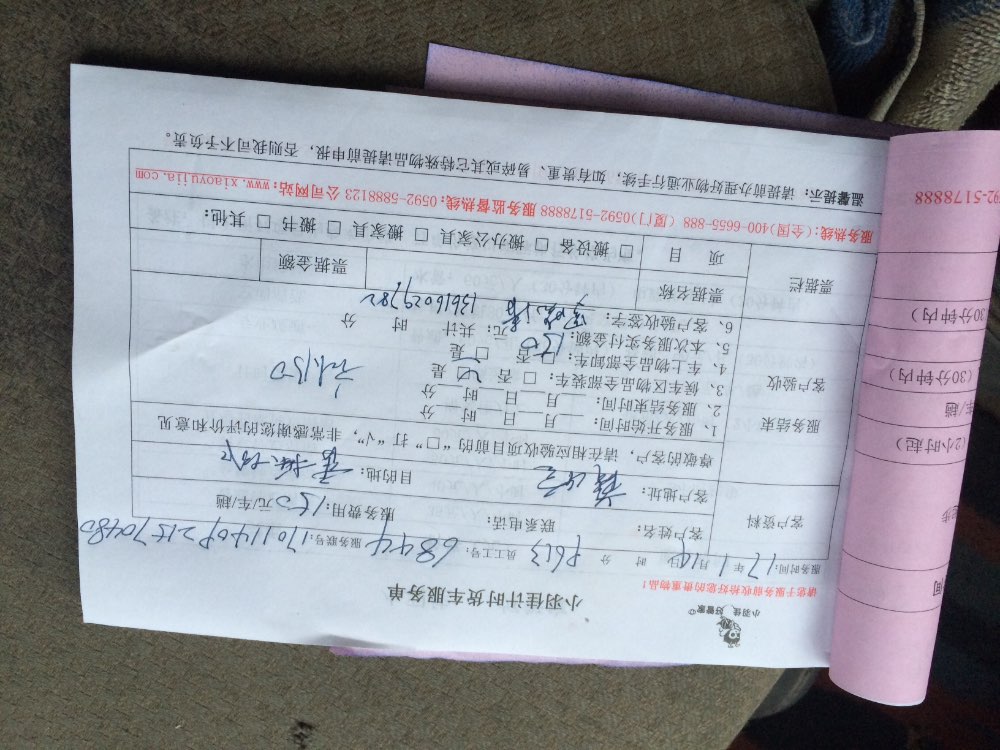 小羽佳 好管家
小羽佳计时货车服务单
请您于服务前收拾好您的贵重物品!
服务时间: 17年1月14日 时 分 员工号: 6844 服务联号: 170114092157048
客户资料
客户姓名: 联系电话: 服务费用: 150元/车/趟
客户地址: 目的地:
尊敬的客户, 请在相应验收项目前的“□”, 打“√”, 非常感谢您的评价和意见
服务结束
客户验收
1、服务开始时间: 月 日 时 分
2、服务结束时间: 月 日 时 分
3、候车区物品全部装车: □ 否 ☑ 是
4、车上物品全部卸车: □ 否 □ 是
5、本次服务实付金额: 150 元; 共计 时 分
6、客户验收签字: 13616029782
票据栏
票据名称
票据金额
项 目
□ 搬设备 □ 搬办公家具 □ 搬家具 □ 搬书 □ 其他:
服务热线: (全国)400-6655-888 (厦门)0592-5178888 服务监督热线: 0592-5888123 公司网站: www.xiaoyujia.com
温馨提示: 请提前办理好物业通行手续, 如有贵重、易碎或其它特殊物品请提前申报, 否则我司不予负责。
间
(2小时起)
车/趟
(30分钟内)
30分钟内)
92-5178888